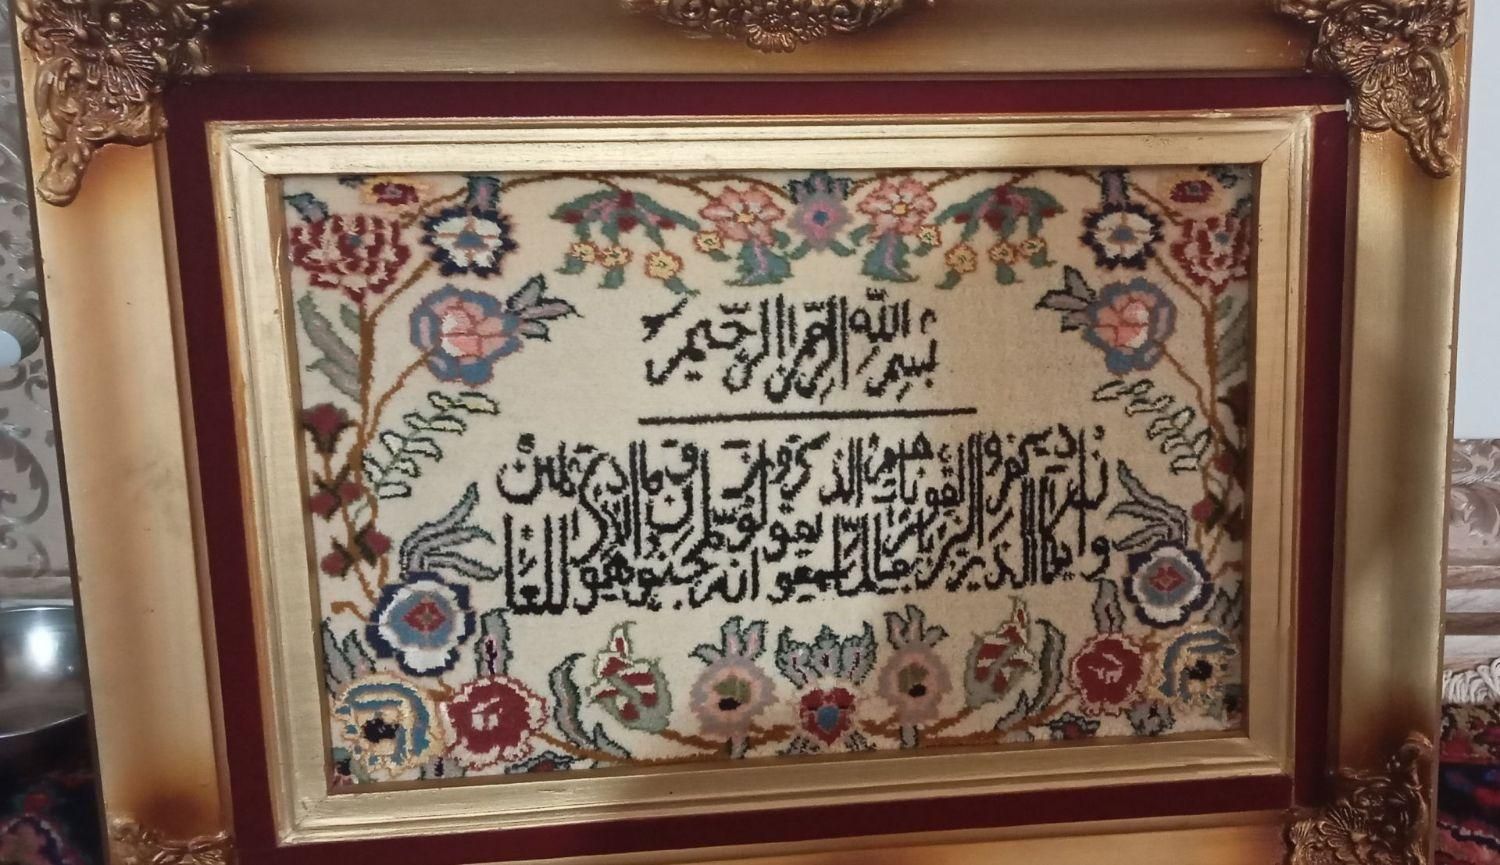 بسم الله الرحمن الرحيم
وان يكاد الذين كفروا ليزلقونك بابصارهم لما سمعوا الذكر ويقولون انه لمجنون وما هو الا ذكر للعالمين